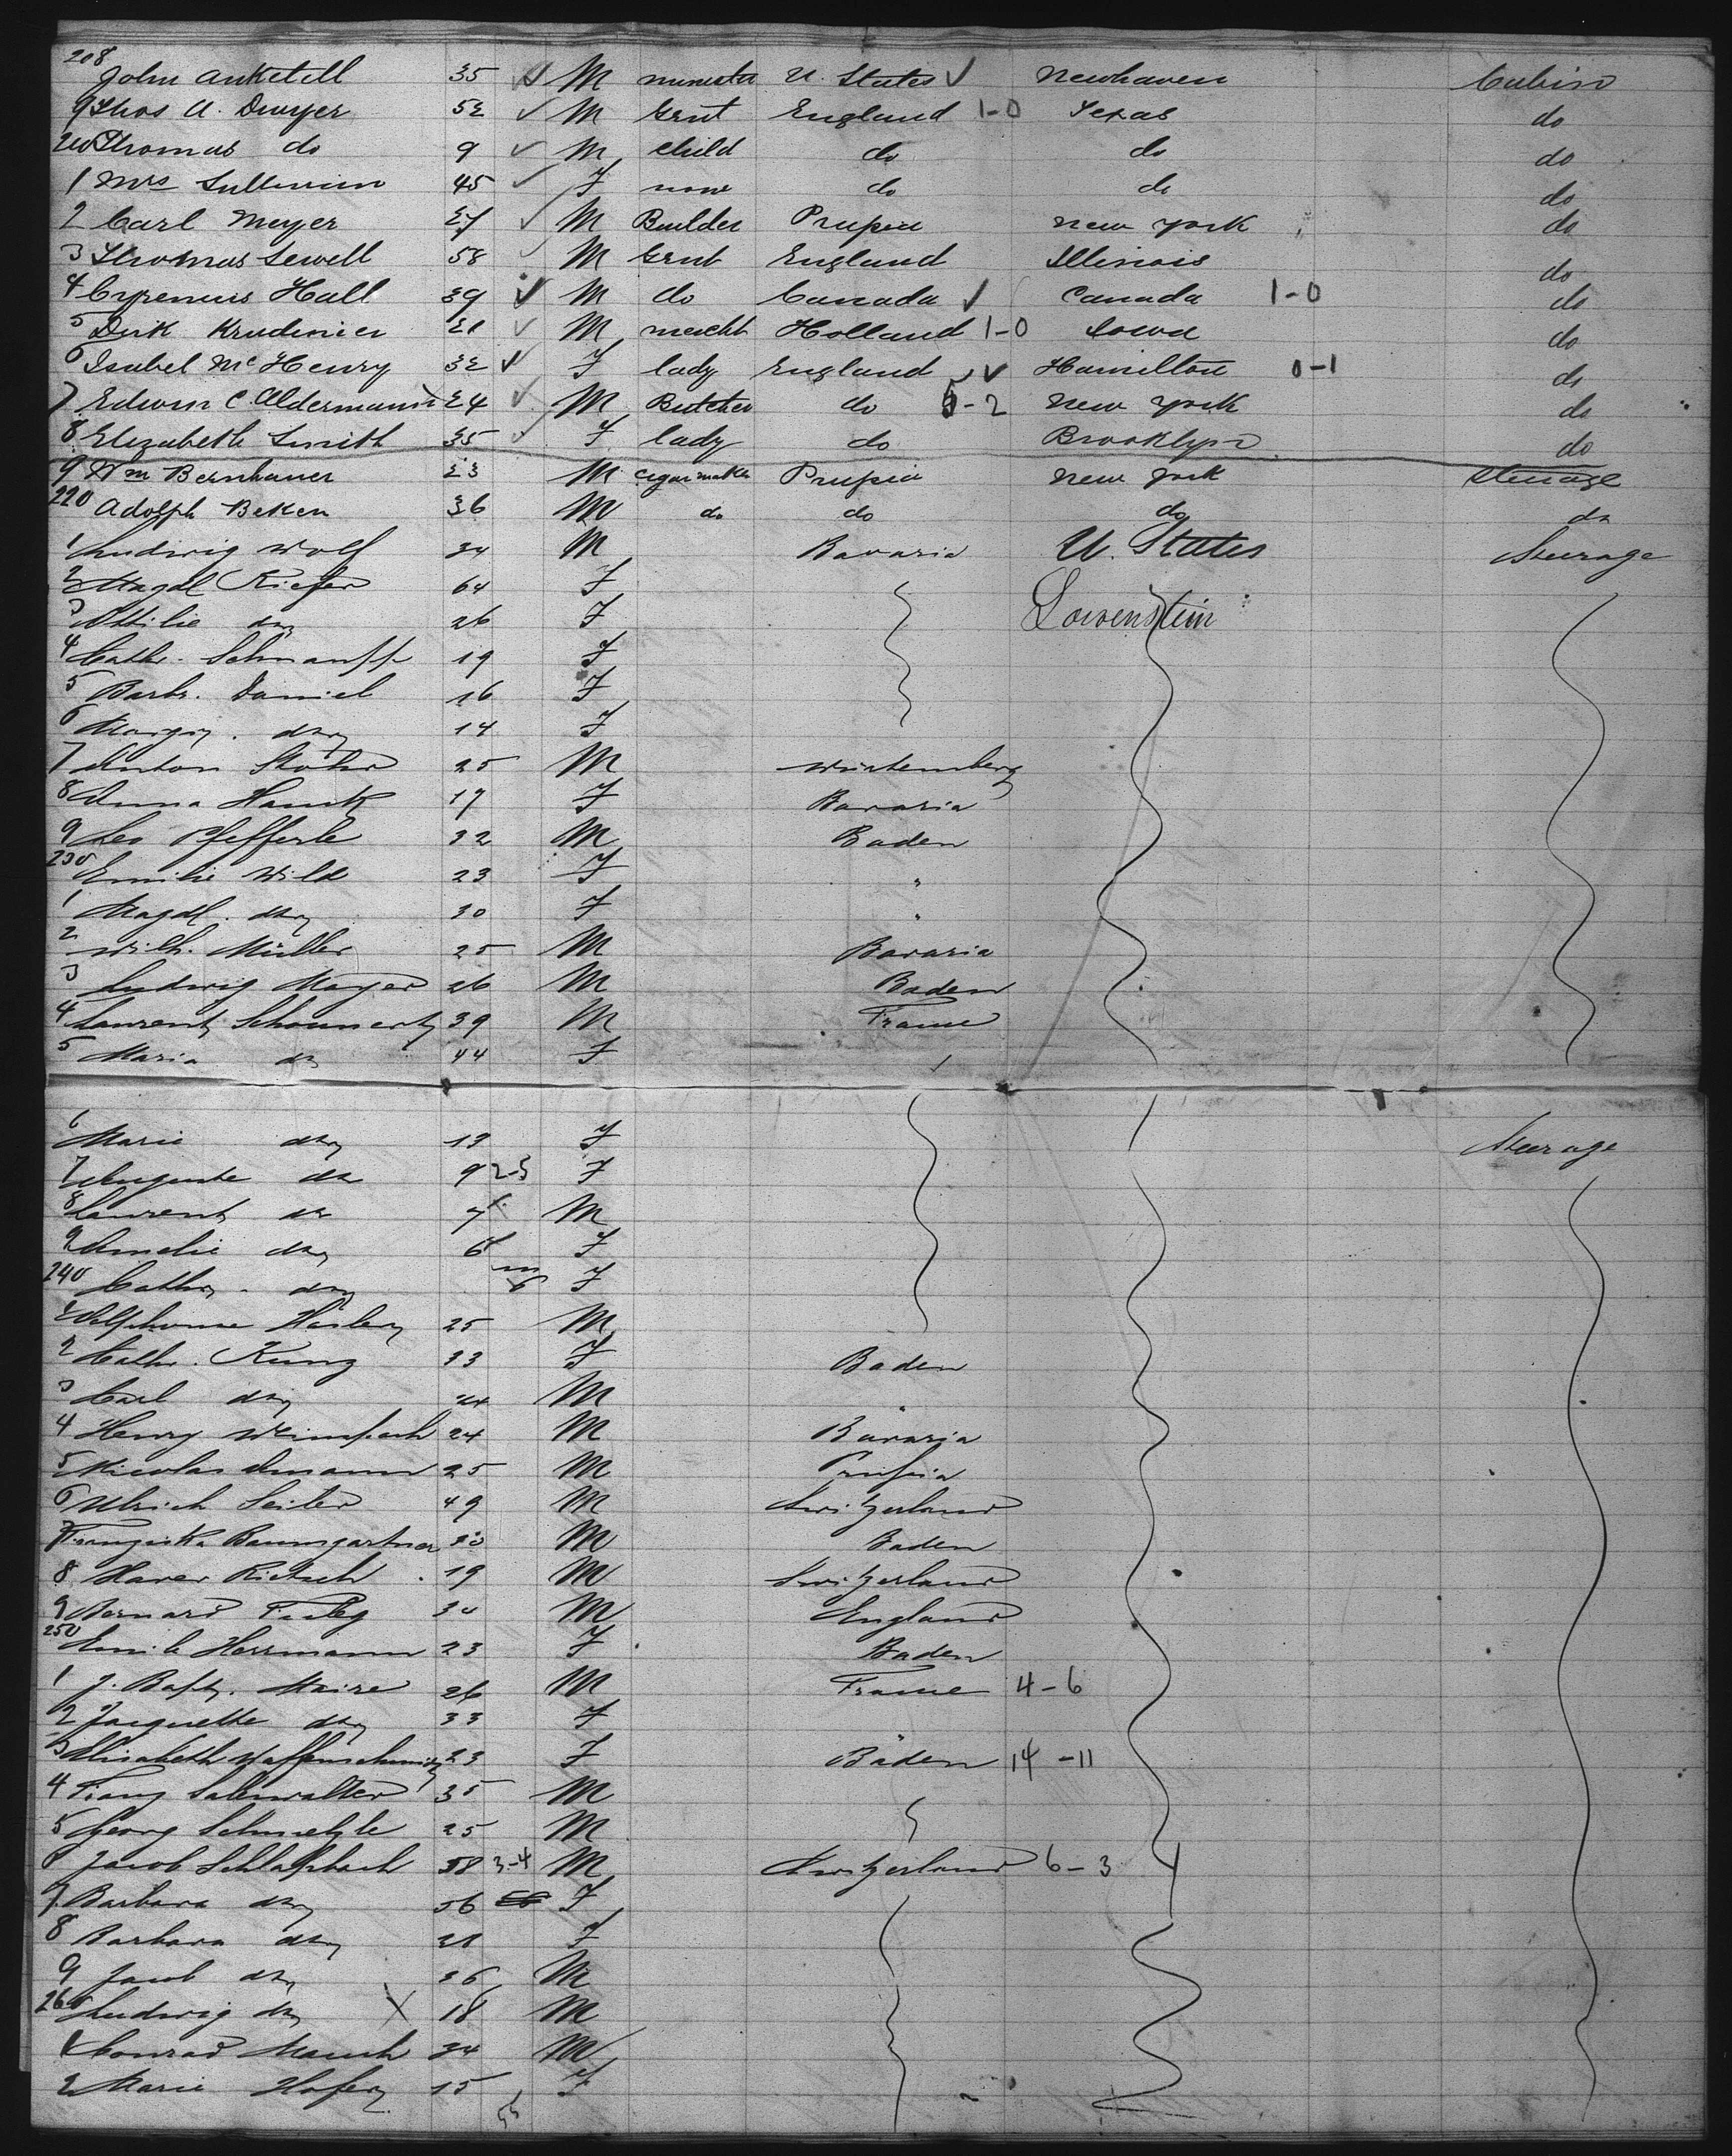 208 John Anketell 35 M minister U. States Newhaven Cabin
9 Thos A. Dwyer 52 M Gent England 1-0 Texas do
210 Thomas do 9 M child do do do
1 Mrs Sullivan 45 F none do do do
2 Carl Meyer 27 M Builder Prussia New York do
3 Thomas Sewell 58 M Gent England Illinois do
4 Cyrenius Hall 39 M do Canada Canada 1-0 do
5 Dirk 21 M mercht Holland 1-0 Iowa do
6 Isabel McHenry 32 F lady England Hamilton 0-1 do
7 Edwin C. Aldermann 24 M Butcher do 5-2 New York do
8 Elizabeth Smith 35 F lady do Brooklyn do
9 Wm Bernhauer 23 M cigar maker Prussia New York Steerage
220 Adolph Beken 36 M do do do do
1 Ludwig Wolf 34 M Bavaria U. States Steerage
2 Magdl Kiefer 64 F
3 26 F Lowenstein
4 Cath. Schnauff 19 F
5 Barb. Daniel 16 F
6 14 F
7 Anton Stohr 25 M Würtemberg
8 Anna Hauck 17 F Bavaria
9 Leo Pfefferle 32 M Baden
230 Emilie Wild 23 F "
1 Magdl. 30 F "
2 Wilh. Müller 25 M Bavaria
3 Ludwig Mayer 26 M Baden
4 Laurent 39 M France
5 Maria do 44 F
6 Marie 19 F Steerage
7 Auguste do 9 2-3 F
8 Laurent do 7 M
9 Amelie 6 F
240 Cath. F
Alphonse 25 M
2 Cath. Kunz 33 F Baden
3 Carl 24 M "
4 Henry 24 M Bavaria
5 Nicolas Amann 25 M Prussia
6 Ulrich Seiler 49 M Switzerland
7 Franziska Baumgartner 20 M Baden
8 Xaver Rietsch 19 M Switzerland
9 Bernard 34 M England
250 Emilie Herrmann 23 F Baden
1 J. Bapt. Maire 26 M France 4-6
2 Jaquette 33 F
3 Elisabeth Waffenschmidt 23 F Baden 14-11
4 Franz 35 M
5 Georg Schmelzle 25 M
6 Jacob Schlapbach 58 3-4 M Switzerland 6-3
7 Barbara 56 F
8 Barbara 21 F
9 Jacob 26 M
260 Ludwig X 18 M
1 Conrad Mauch 34 M
2 Marie Hofer 15 F